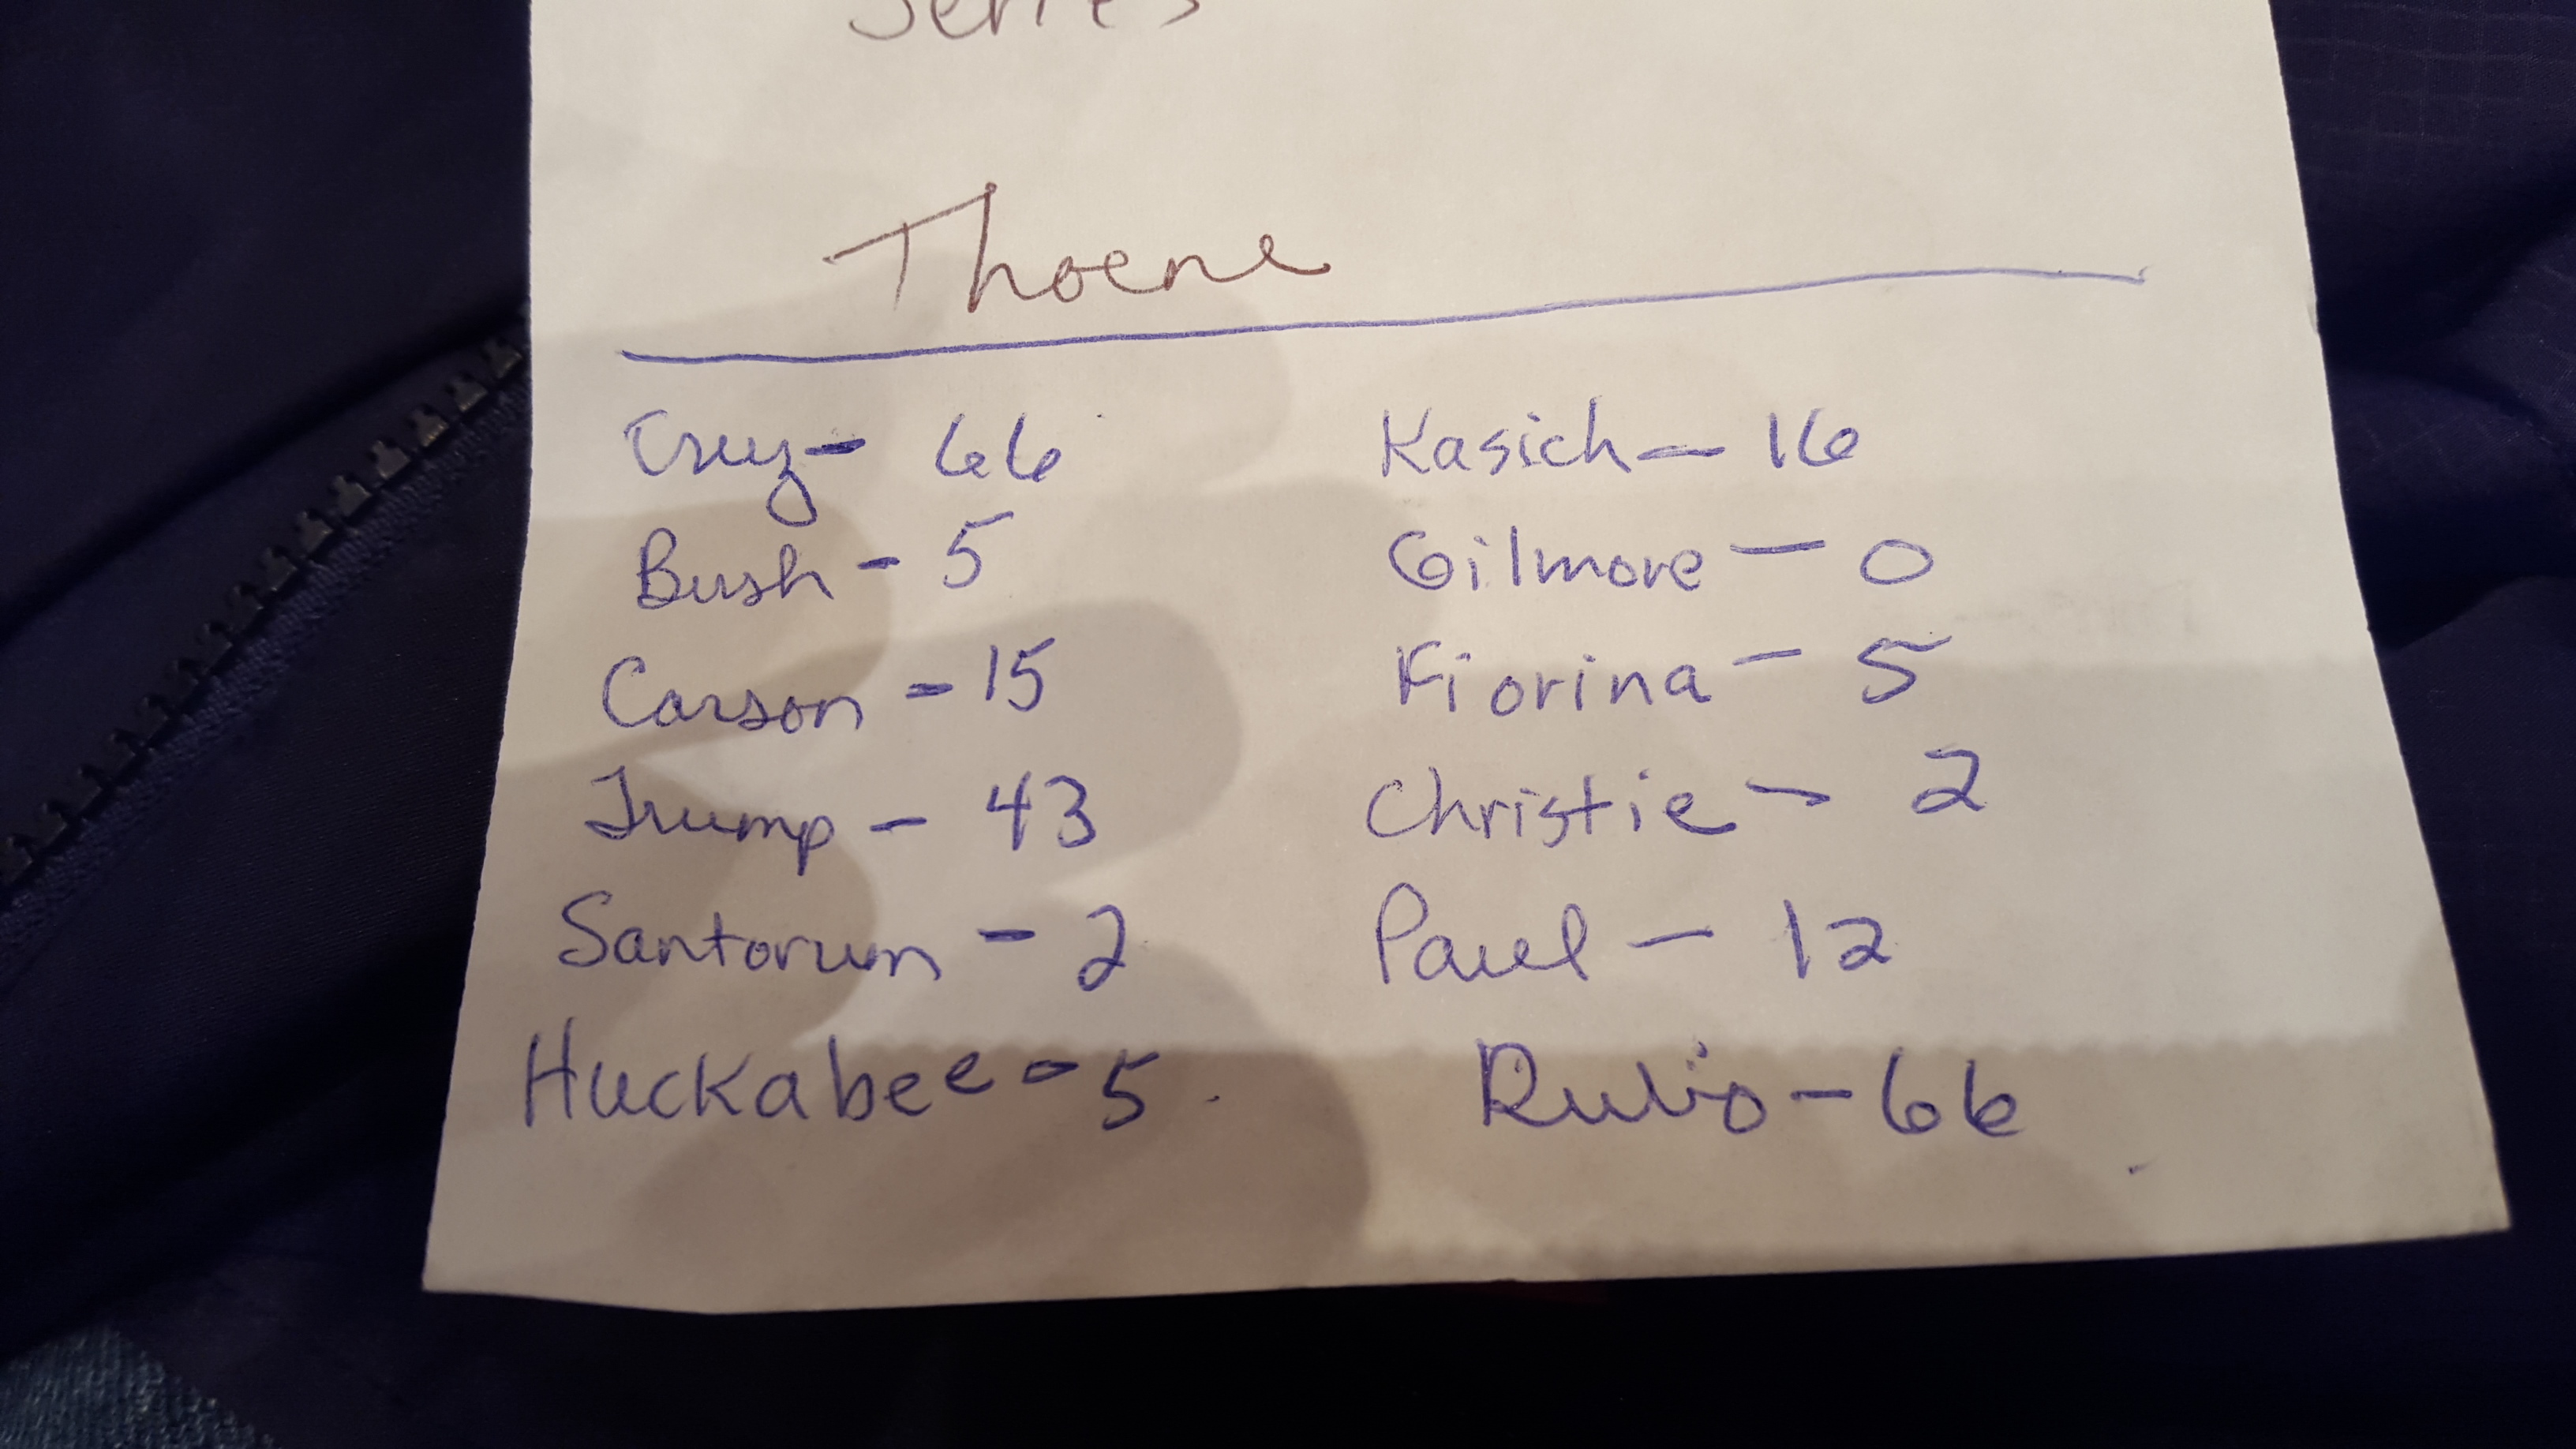 Series
Thoene
Cruz - 66
Bush - 5
Carson - 15
Trump - 43
Santorum - 2
Huckabee - 5
Kasich - 16
Gilmore - 0
Fiorina - 5
Christie - 2
Paul - 12
Rubio - 66